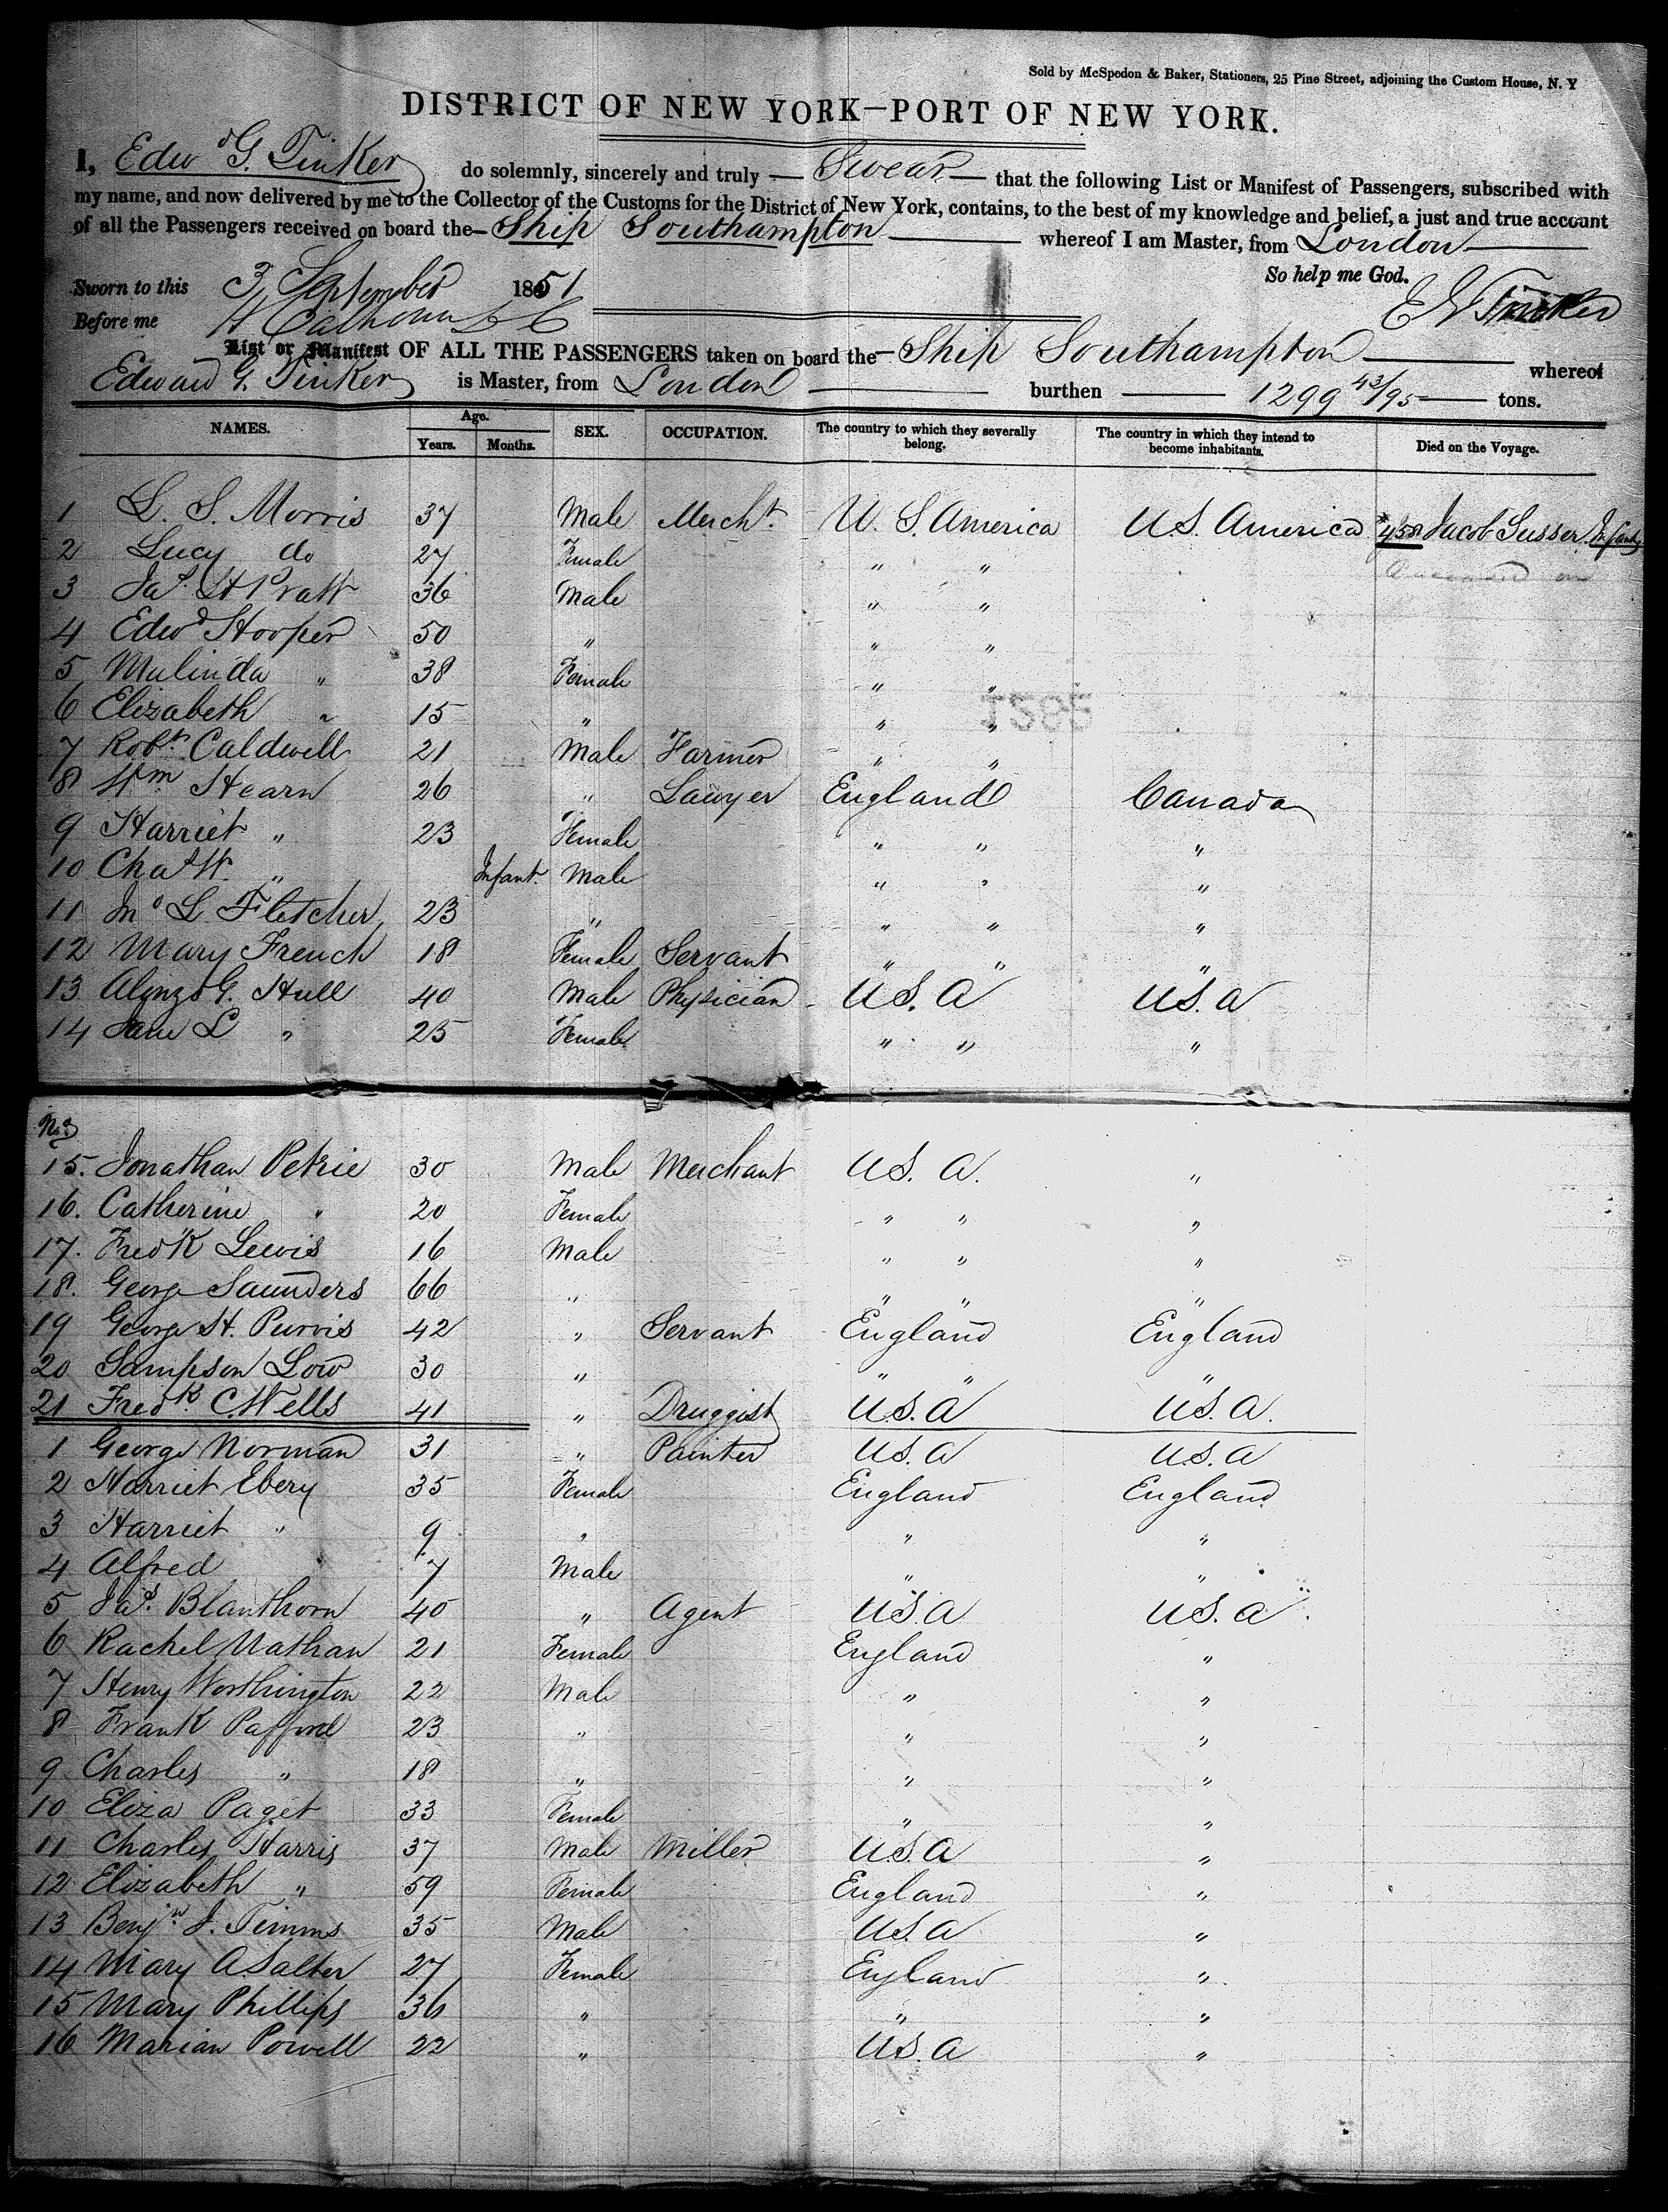 Sold by McSpedon & Baker, Stationers, 25 Pine Street, adjoining the Custom House, N. Y
DISTRICT OF NEW YORK—PORT OF NEW YORK.
I, Edwd G. Tinker do solemnly, sincerely and truly — Swear — that the following List or Manifest of Passengers, subscribed with
my name, and now delivered by me to the Collector of the Customs for the District of New York, contains, to the best of my knowledge and belief, a just and true account
of all the Passengers received on board the Ship Southampton whereof I am Master, from London
So help me God.
Sworn to this 3 September 1851
E G Tinker
Before me Calhoun
List or Manifest OF ALL THE PASSENGERS taken on board the Ship Southampton whereof
Edward G. Tinker is Master, from London burthen 1299 43/95 tons.
NAMES. Age. Years. Months. SEX. OCCUPATION. The country to which they severally belong. The country in which they intend to become inhabitants. Died on the Voyage.
1 L. S. Morris 37 Male Mercht. U. S. America U.S. America 458 Jacob Susser. Infant
2 Lucy do 27 Female " "
3 Jas. H Pratt 36 Male " "
4 Edwd Hooper 50 " " "
5 Malinda " 38 Female " "
6 Elizabeth " 15 " " "
7 Robt. Caldwell 21 Male Farmer " "
8 Wm Hearn 26 " Lawyer England Canada
9 Harriet " 23 Female " " "
10 Chas W. " Infant. Male " " "
11 Jno L Fletcher 23 " " " "
12 Mary French 18 Female Servant " " "
13 Alonzo G. Hull 40 Male Physician U.S. A U.S. A
14 Jane L " 25 Female " " "
No
15. Jonathan Petrie 30 Male Merchant U.S. A. "
16. Catherine " 20 Female " " "
17. Fredk Lewis 16 Male " " "
18. George Saunders 66 " " " "
19 George H. Purvis 42 " Servant England England
20 Sampson Low 30 " " " "
21 Fredk. C. Wells 41 " Druggist U.S. A U.S. A.
1 George Norman 31 " Painter U.S. A U.S. A
2 Harriet Ebery 35 Female England England
3 Harriet " 9 " " "
4 Alfred " 7 Male " "
5 Jas. Blanthorn 40 " Agent U.S. A U.S. A
6 Rachel Nathan 21 Female England "
7 Henry Worthington 22 Male " "
8 Frank Pafford 23 " " "
9 Charles " 18 " " "
10 Eliza Paget 33 Female " "
11 Charles Harris 37 Male Miller U.S. A "
12 Elizabeth " 59 Female England "
13 Benjn. J. Timms 35 Male U.S. A "
14 Mary A. Salter 27 Female England "
15 Mary Phillips 36 " " "
16 Marian Powell 22 " U.S. A "